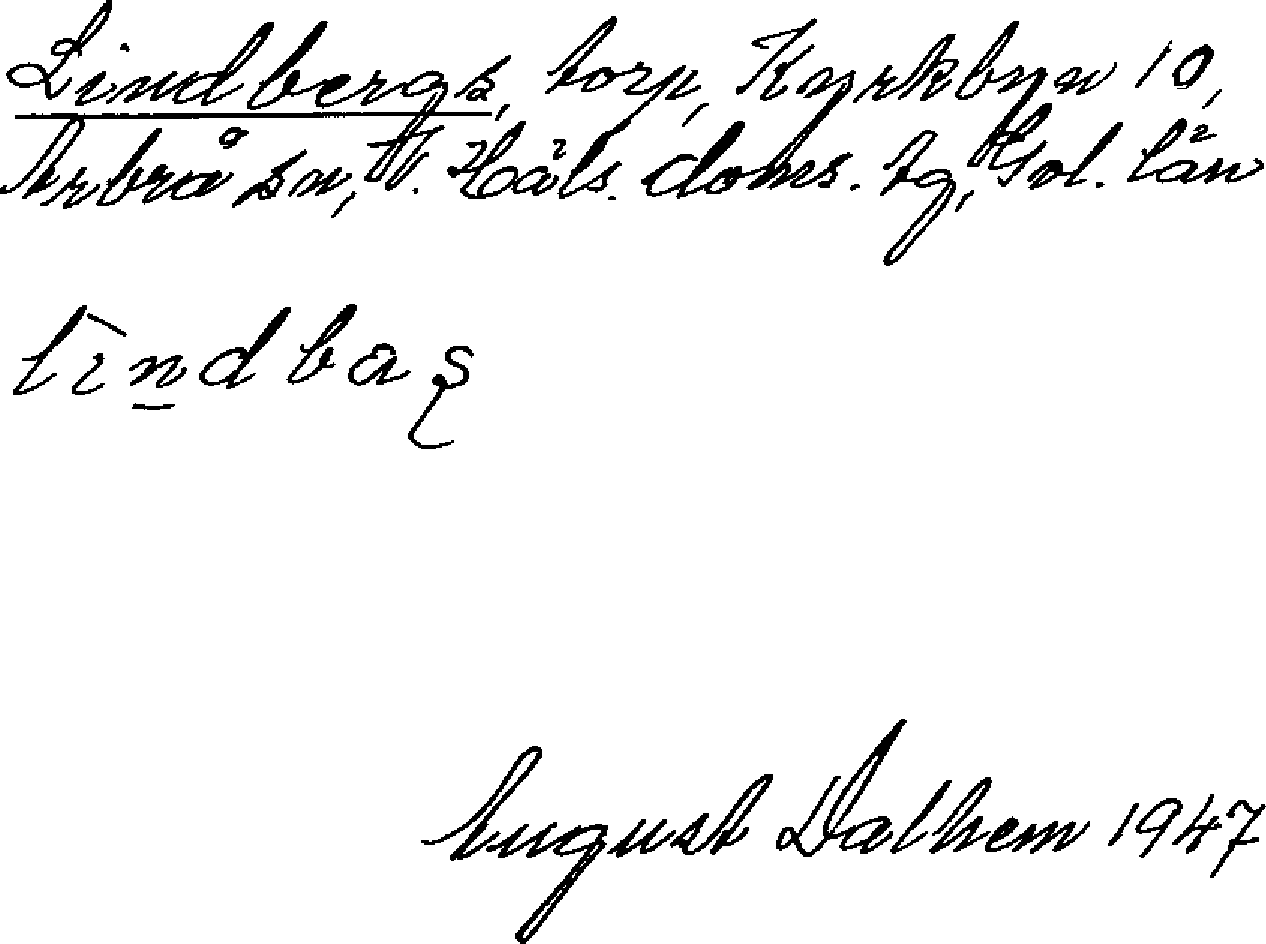 Lindbergs, torp, Kyrkbyn 10,
Arbrå sn, V. Häls. doms. tg, Gvl. län
lindbas
August Dalhem 1947